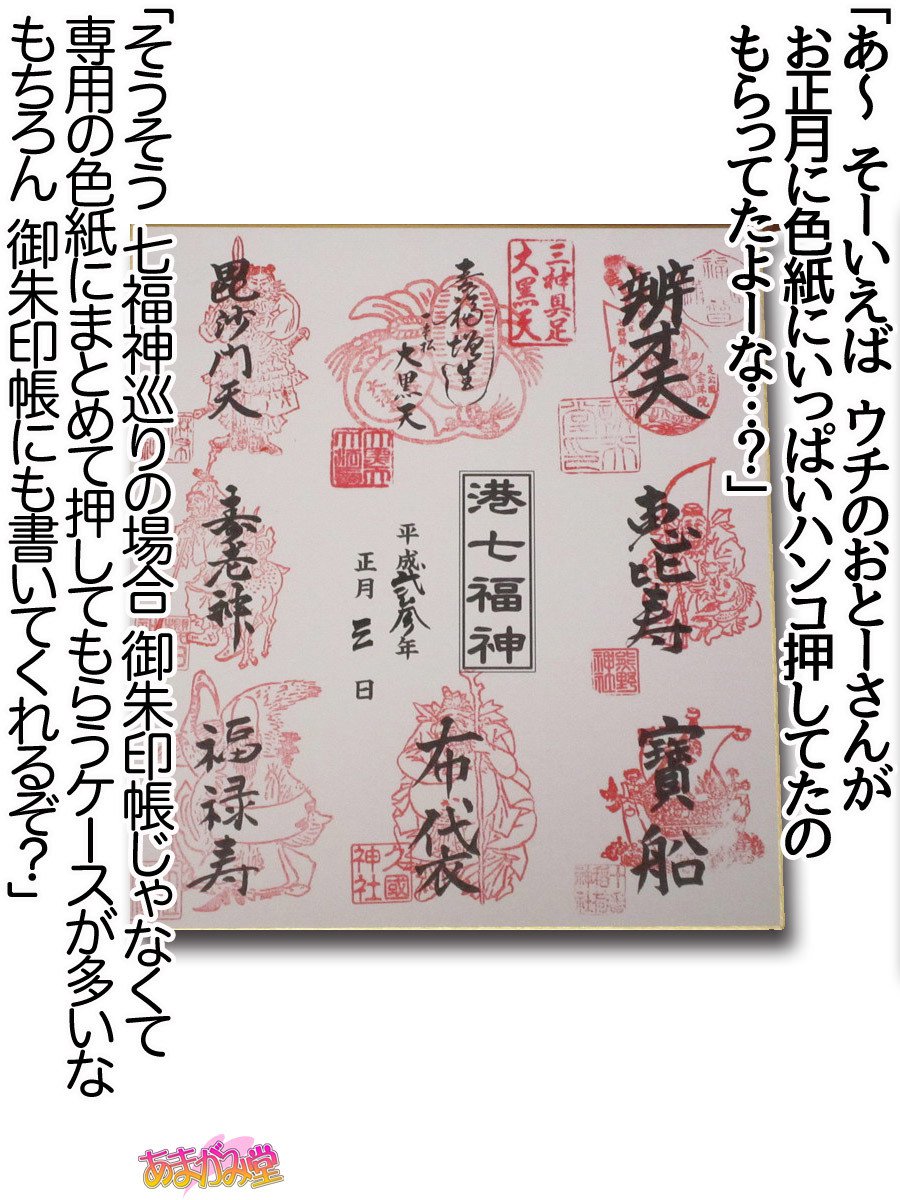 「あ～ そーいえば ウチのおとーさんが
お正月に色紙にいっぱいハンコ押してたの
もらってたよーな…？」
辨才天
三神具足
大黒天
大黒天
毘沙門天
恵比寿
熊野
神社
港七福神
平成弐参年
正月 三 日
寿老神
寶船
布袋
久國
神社
福禄寿
「そうそう 七福神巡りの場合 御朱印帳じゃなくて
専用の色紙にまとめて押してもらうケースが多いな
もちろん 御朱印帳にも書いてくれるぞ？」
あまがみ堂